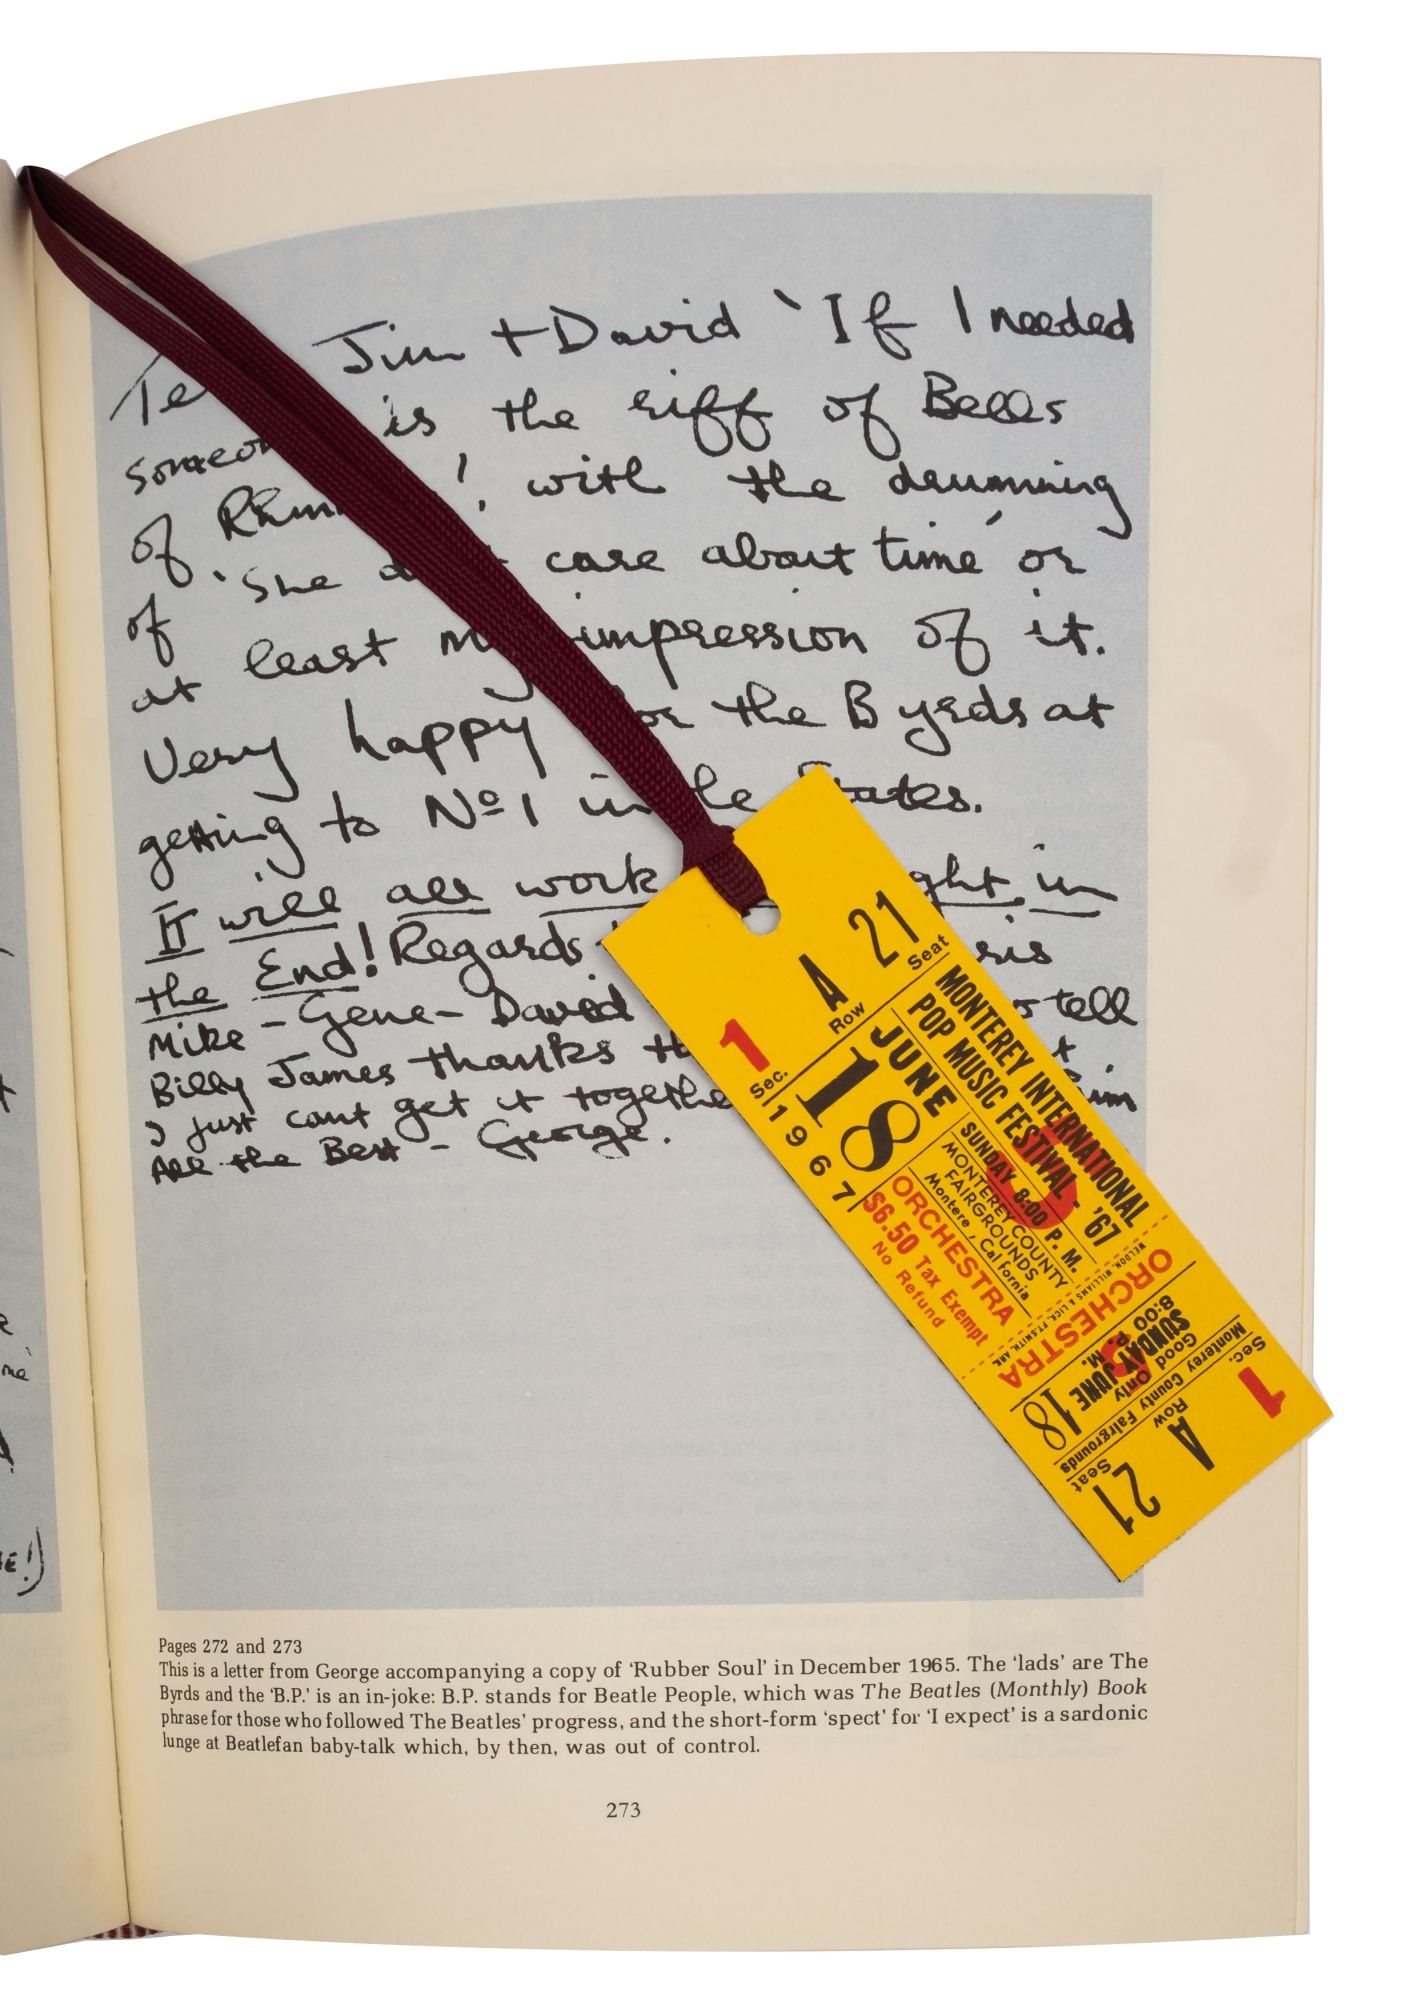 Jim + David 'If I needed
is the riff of Bells
of with the drumming
of 'She care about time' or
at least impression of it.
Very happy the Byrds at
getting to Nº 1 in States.
It will all work in
the End! Regards
Mike - Gene - David tell
Billy James thanks
I just cant get it together
All the Best - George.
21
Seat
A
Row
1
Sec.
MONTEREY INTERNATIONAL
POP MUSIC FESTIVAL - '67
JUNE
18
1967
SUNDAY 8:00 P. M.
MONTEREY COUNTY
FAIRGROUNDS
Montere , California
ORCHESTRA
$6.50 Tax Exempt
No Refund
WELDON, WILLIAMS & LICK, FT. SMITH, ARK.
ORCHESTRA
8:00 P. M.
SUNDAY JUNE 18
Good Only
Monterey County Fairgrounds
Sec.
1
Row
A
Seat
21
Pages 272 and 273
This is a letter from George accompanying a copy of 'Rubber Soul' in December 1965. The 'lads' are The
Byrds and the 'B.P.' is an in-joke: B.P. stands for Beatle People, which was The Beatles (Monthly) Book
phrase for those who followed The Beatles' progress, and the short-form 'spect' for 'I expect' is a sardonic
lunge at Beatlefan baby-talk which, by then, was out of control.
273